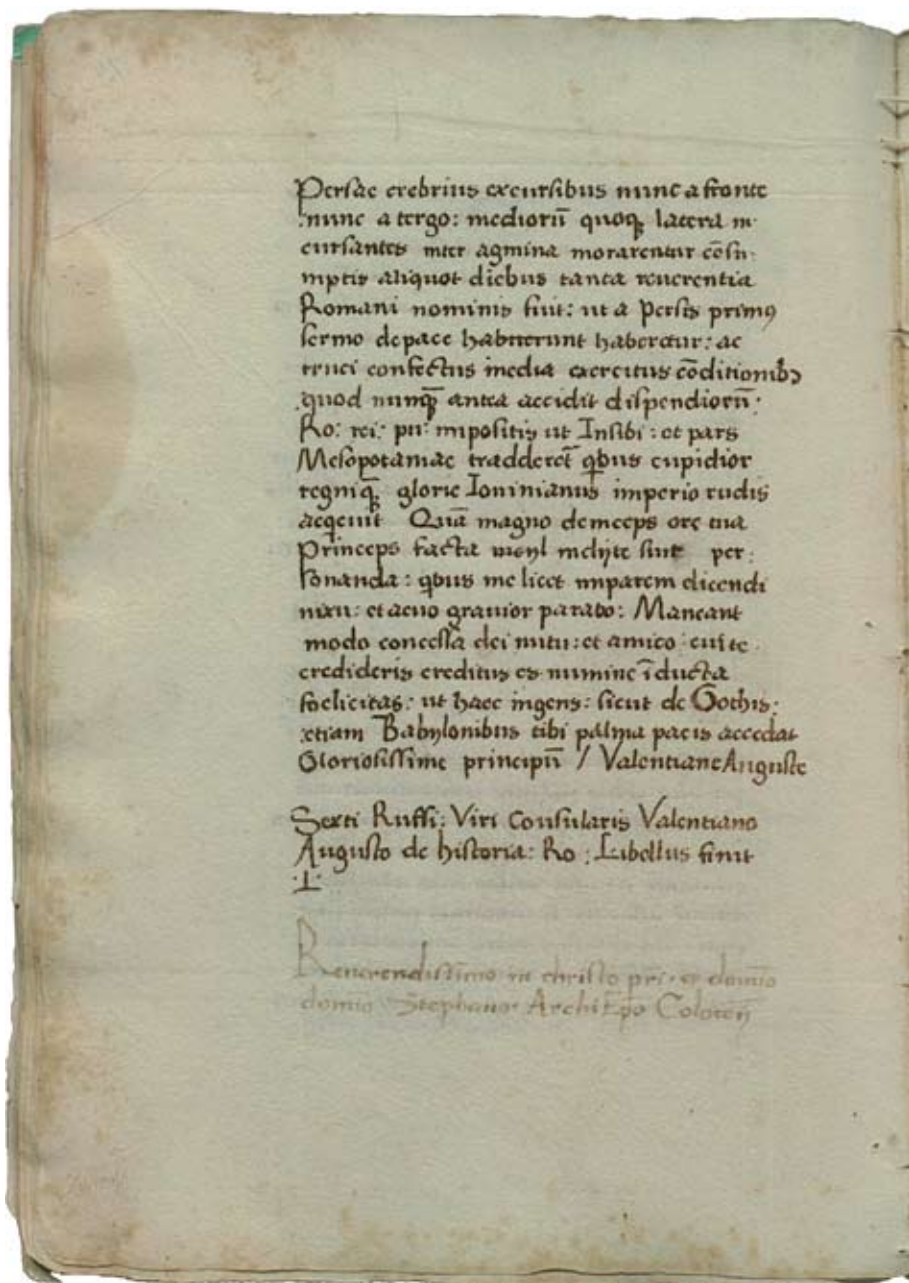 Persae crebrius excursibus nunc a fronte
nunc a tergo: mediorū quoq; latera in-
cursantes inter agmina morarentur cōsu-
mptis aliquot diebus tanta reuerentia
Romani nominis fuit: ut a Persis primꝯ
sermo de pace habuerunt haberetur: ac
truci confectus inedia exercitus cōditionibꝫ
quod nunq̄ antea accidit dispendiorū·
Ro: rei: pu: impositis ut Insibi: et pars
Mesopotamiae tradderet̄ qbus cupidior
regniq; glorie Iouinianus imperio rudis
acqeuit Quā magno deinceps ore tua
Princeps facta inclyte sunt per:
sonanda: qbus me licet imparem dicendi
nixu: et aeuo grauior parabo: Maneant
modo concessa dei nutu: et amico cui te
credideris creditus es numine īducta
foelicitas: ut haec ingens: sicut de Gothis:
etiam Babylonibus tibi palma pacis accedat
Gloriosissime principū / Valentiane Auguste
Sexti Ruffi: Viri Consularis Valentiano
Augusto de historia: Ro: Libellus finit
Reuerendissimo in christo pri· et domīo
domīo Stephano· ArchiEp̄o Colocen̄